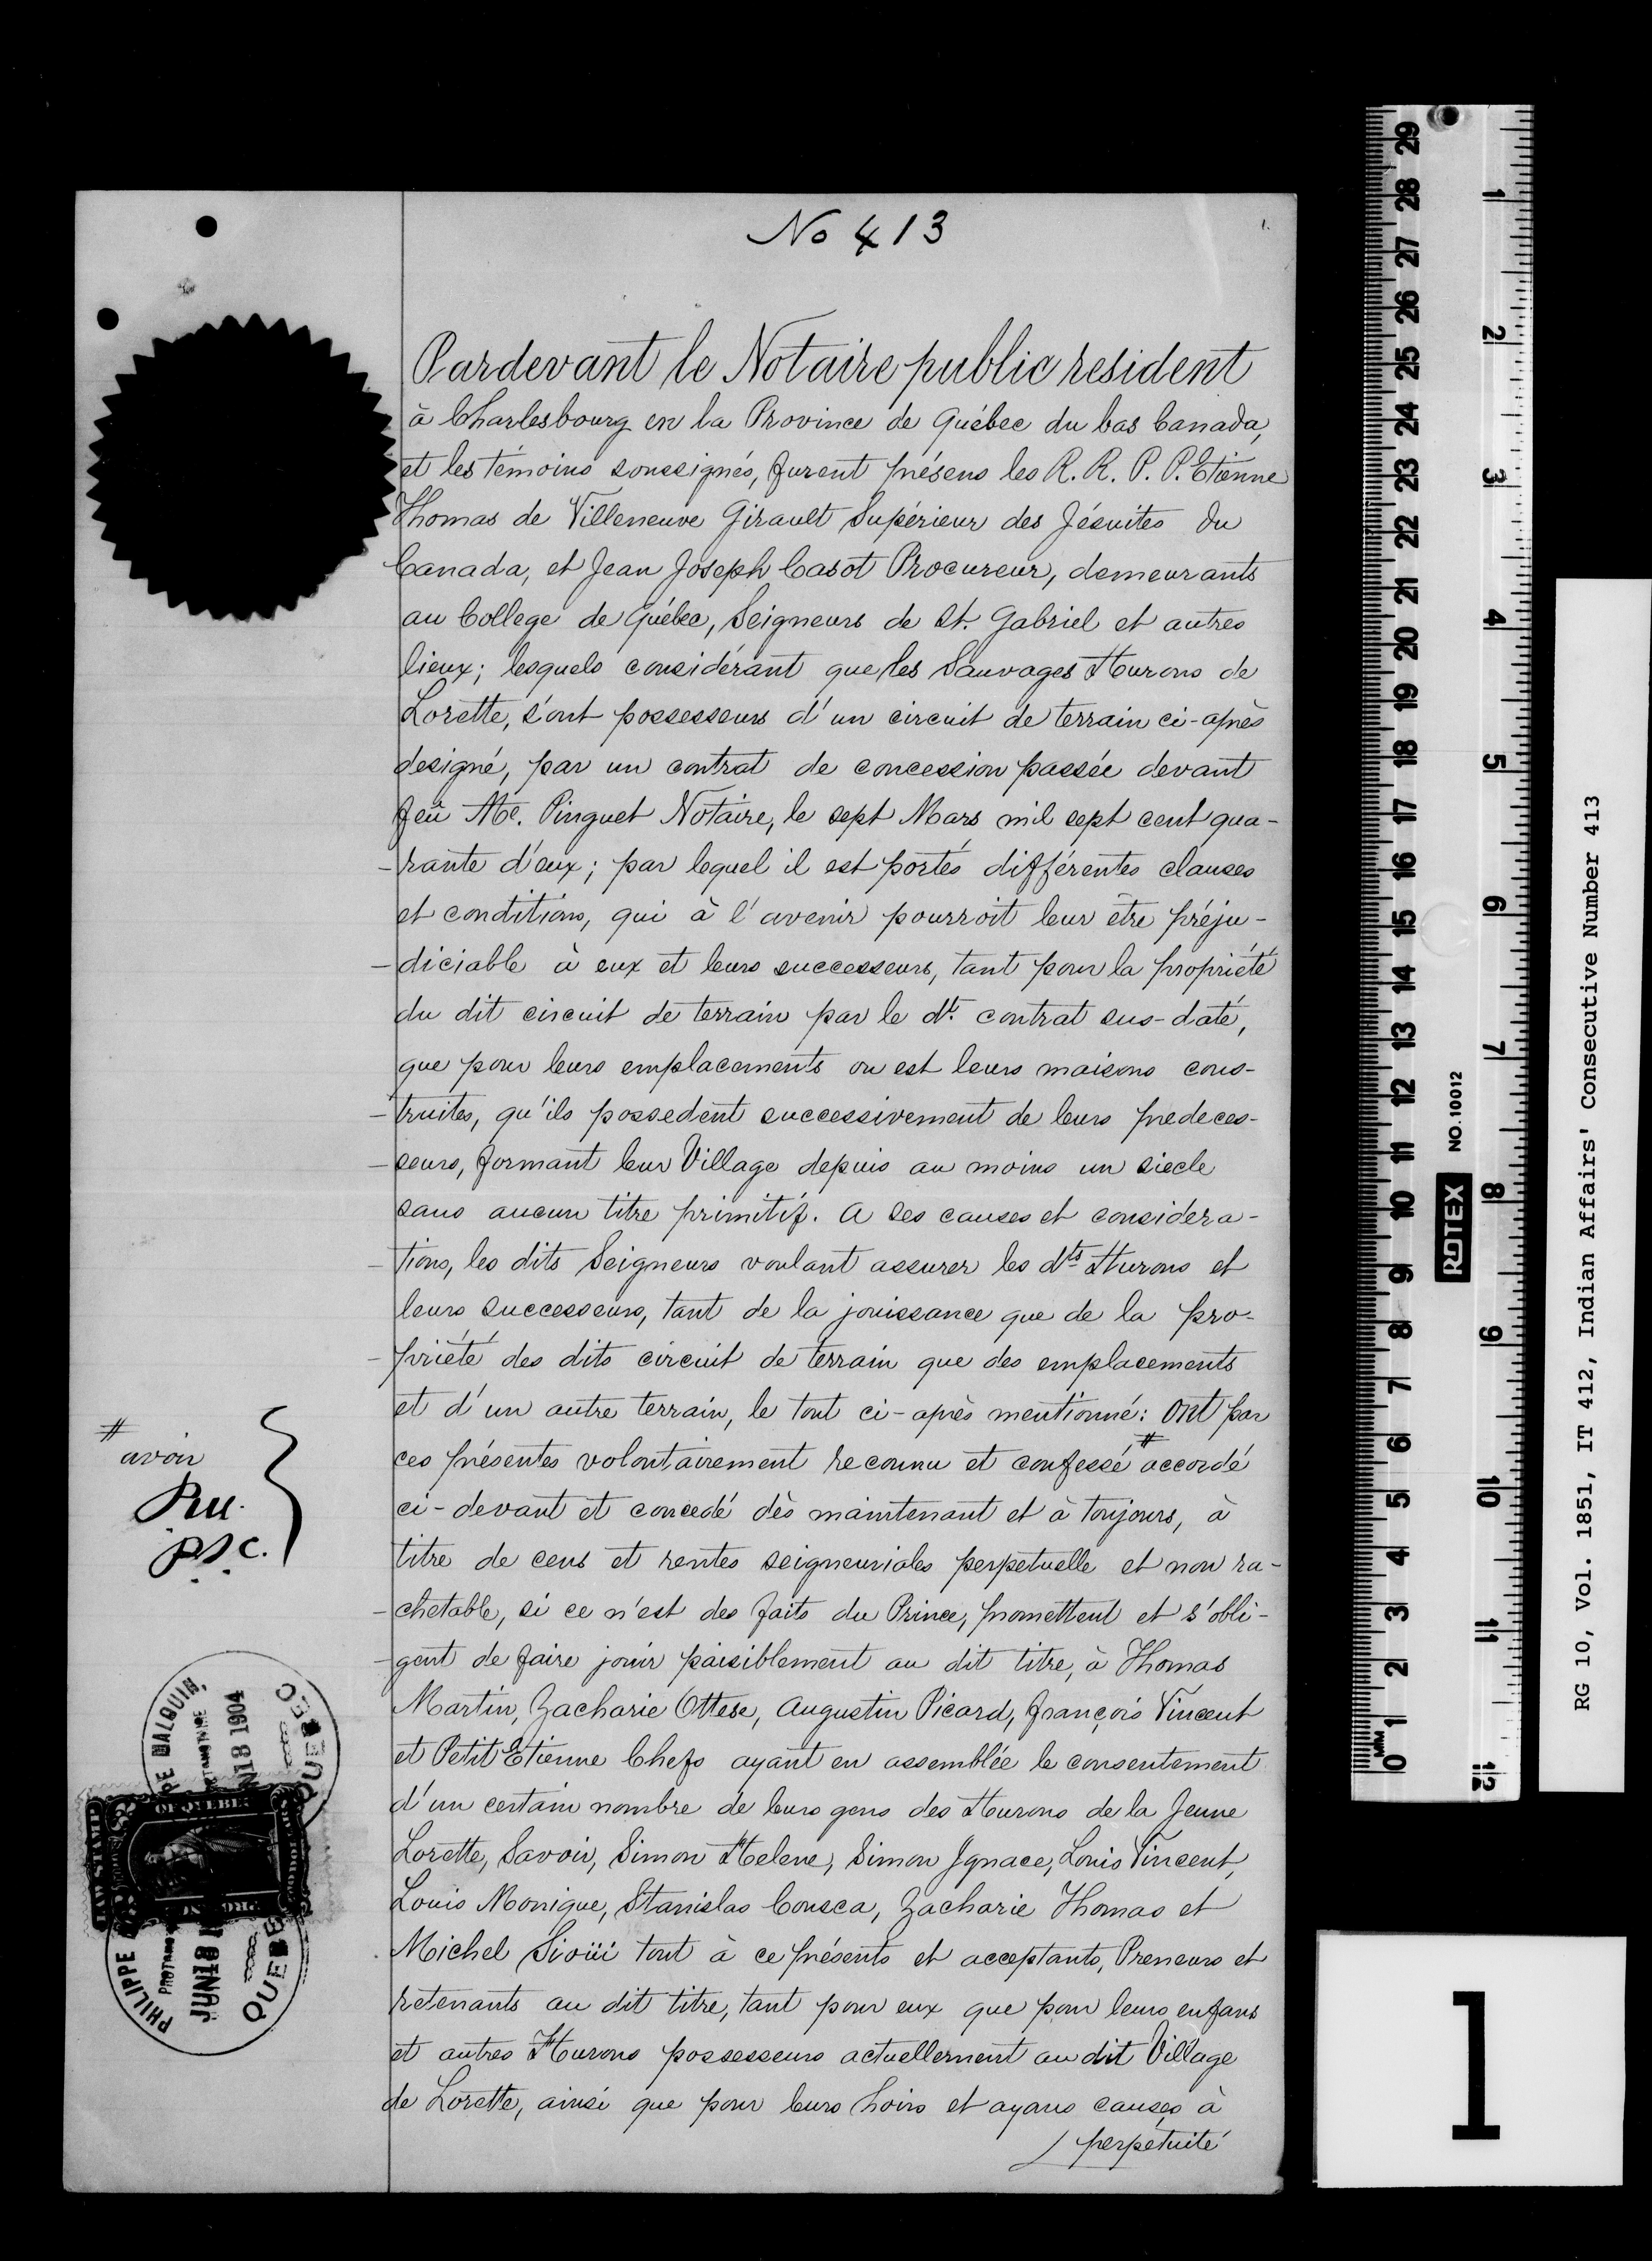 No 413
1.
Pardevant le Notaire public resident
à Charlesbourg en la Province de Québec du bas Canada,
et les témoins soussignés, furent présens les R. R. P. P. Etienne
Thomas de Villeneuve Girault Supérieur des Jésuites du
Canada, et Jean Joseph Casot Procureur, demeurants
au College de Québec, Seigneurs de St. Gabriel et autres
lieux; lesquels considérant que les Sauvages Hurons de
Lorette, s'ont possesseurs d'un circuit de terrain ci-après
designé, par un contrat de concession passée devant
feû Me. Pinguet Notaire, le sept Mars mil sept cent qua-
-rante d'eux; par lequel il est portés différentes clauses
et conditions, qui à l'avenir pourroit leur être préju-
-diciable à eux et leurs successeurs, tant pour la propriété
du dit circuit de terrain par le dt. contrat sus-daté,
que pour leurs emplacements ou est leurs maisons cons-
-truites, qu'ils possedent successivement de leurs predeces-
-seurs, formant leur Village depuis au moins un siecle
sans aucun titre primitif. A ses causes et considera-
-tions, les dits Seigneurs voulant assurer les dts Hurons et
leurs successeurs, tant de la jouissance que de la pro-
-priété des dits circuit de terrain que des emplacements
et d'un autre terrain, le tout ci-après mentionné: Ont par
ces présentes volontairement reconnu et confessé # accordé
ci-devant et concedé dès maintenant et à toujours, à
titre de cens et rentes seigneuriales perpetuelle et non ra-
-chetable, si ce n'est des faits du Prince, promettent et s'obli-
-gent de faire jouir paisiblement au dit titre, à Thomas
Martin, Zacharie Ottese, Augustin Picard, François Vincent
et Petit Etienne Chefs ayant en assemblée le consentement
d'un certain nombre de leurs gens des Hurons de la Jeune
Lorette, Savoir, Simon Helene, Simon Ignace, Louis Vincent,
Louis Monique, Stanislas Cousca, Zacharie Thomas et
Michel Sioüi tout à ce présents et acceptants, Preneurs et
retenants au dit titre, tant pour eux que pour leurs enfans
et autres Hurons possesseurs actuellement au dit Village
de Lorette, ainsi que pour leurs hoirs et ayans causes à
perpetuité
#
avoir
P.S.C.
PHILIPPE MALOUIN,
JUN 18 1904
QUEBEC
LAW STAMP
OF QUEBEC
PHILIPPE
JUN 18
QUEBEC
29 28 27 26 25 24 23 22 21 20 19 18 17 16 15 14 13 12 11 10 9 8 7 6 5 4 3 2 1 0
MM
1 2 3 4 5 6 7 8 9 10 11 12
NO. 10012
RG 10, Vol. 1851, IT 412, Indian Affairs' Consecutive Number 413
1